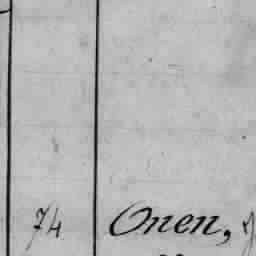 74 Onen,